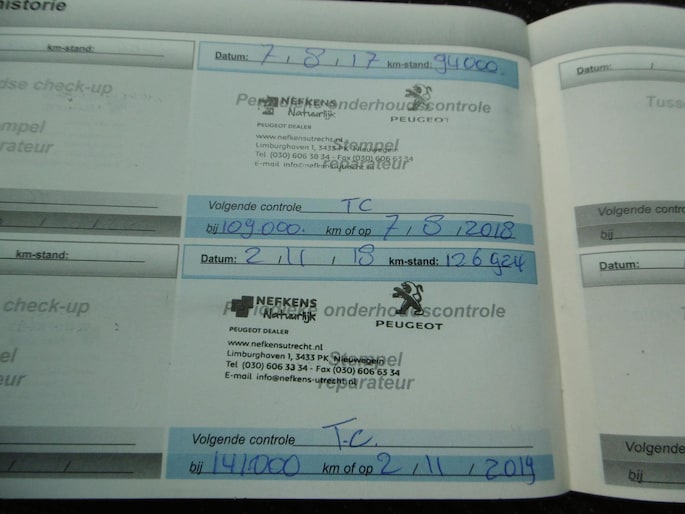 historie
km-stand:
Datum: 7, 8, 17 km-stand: 94000.
Datum: /
dse check-up
Periodieke onderhoudscontrole
NEFKENS
Natuurlijk
PEUGEOT
PEUGEOT DEALER
Tusse
mpel
Stempel
www.nefkensutrecht.nl
Limburghaven 1, 3433 PK Nieuwegein
rateur
reparateur
Tel. (030) 606 33 34 - Fax (030) 606 63 34
E-mail info@nefkens-utrecht.nl
Volgende controle TC
Volgende contro
bij 109000. km of op 7, 8, 2018
bij
km-stand:
Datum: 2, 11, 18 km-stand: 126924
Datum:
check-up
Periodieke onderhoudscontrole
NEFKENS
Natuurlijk
PEUGEOT
PEUGEOT DEALER
www.nefkensutrecht.nl
el
Stempel
Limburghaven 1, 3433 PK Nieuwegein
Tel. (030) 606 33 34 - Fax (030) 606 63 34
eur
reparateur
E-mail info@nefkens-utrecht.nl
Volgende controle T.C.
Volgende
bij 141.000 km of op 2, 11, 2019
bij